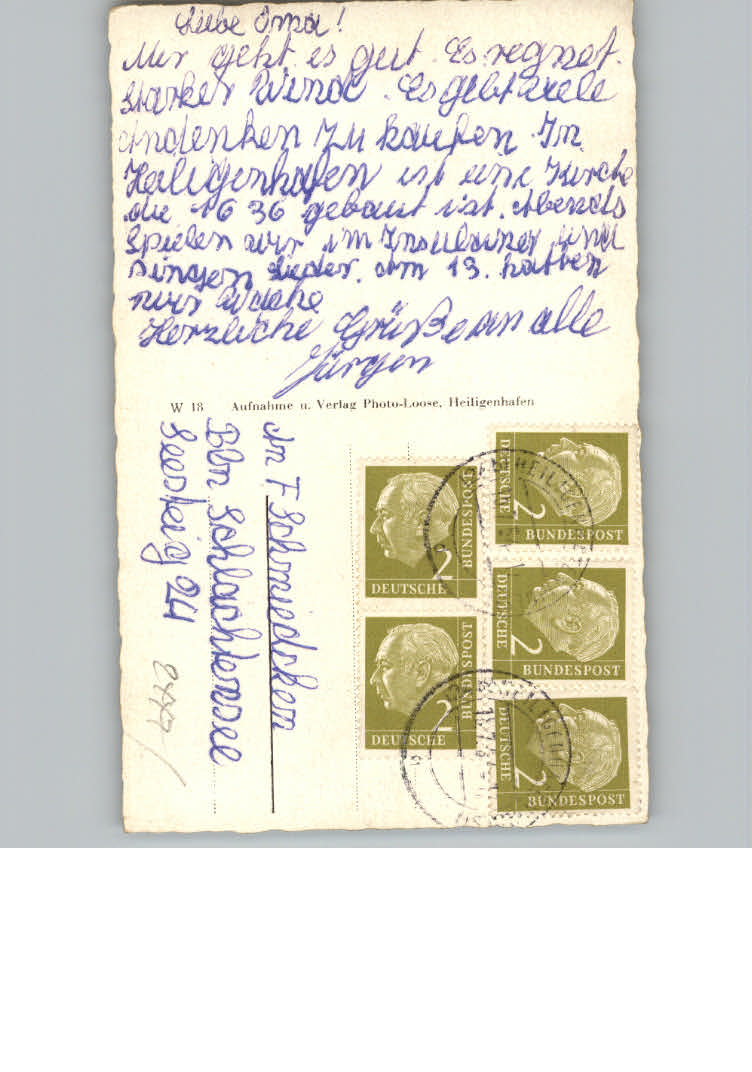 Liebe Oma!
Mir geht es gut. Es regnet.
Starker Wind. Es gibt viele
Andenken zu kaufen. In
Heiligenhafen ist eine Kirche
die 1636 gebaut ist. Abends
spielen wir im Insulaner und
singen Lieder. Am 13. hatten
wir Wache
Herzliche Grüße an alle
Jürgen
W 18 Aufnahme u. Verlag Photo-Loose, Heiligenhafen
An F Schmiedchen
Bln Schlachtensee
24
DEUTSCHE BUNDESPOST 2
DEUTSCHE BUNDESPOST 2
DEUTSCHE BUNDESPOST 2
DEUTSCHE BUNDESPOST 2
DEUTSCHE BUNDESPOST 2